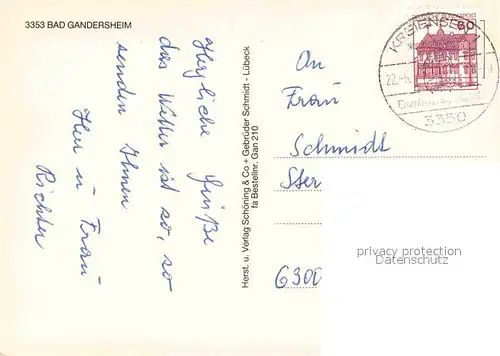 3353 BAD GANDERSHEIM
Herzliche Grüße
das Wetter ist so, so
senden Ihnen
Herr u Frau
Richter
Herst. u. Verlag Schöning & Co + Gebrüder Schmidt - Lübeck
fa Bestellnr. Gan 210
An
Frau
Schmidt
Ster
6300
60
KREIENSEN
22.
3350
privacy protection
Datenschutz